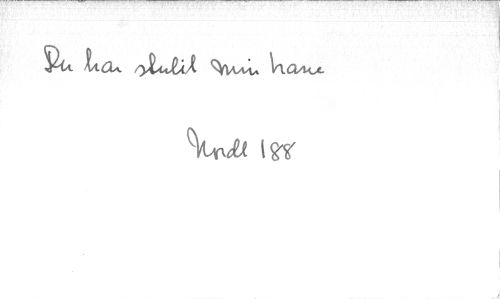 Du har stulit min hane
Nordl 188